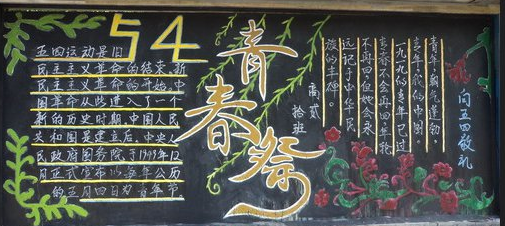 54
五四运动是旧
民主主义革命的结束,新
民主主义革命的开始,中
国革命从此进入了一个
新的历史时期,中国人民
共和国是建立后,中央人
民政府国务院于1949年12
月正式宣布以每年公历
的五月四日为青年节
青春祭
高贰
拾班
向五四敬礼
青年朝气蓬勃
青年式的中国。
一九一九的青年已过
青春不会再四年轮
不再回但她会永
远记于中华民
族的丰碑。